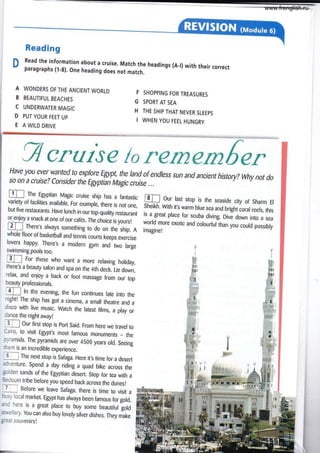 www.frenglish.ru
REVISION (Module 6)
Reading
D Read the information about a cruise. Match the headings (A-I) with their correct
paragraphs (1-8). One heading does not match.
A WONDERS OF THE ANCIENT WORLD
B BEAUTIFUL BEACHES
C UNDERWATER MAGIC
D PUT YOUR FEET UP
E A WILD DRIVE
F SHOPPING FOR TREASURES
G SPORT AT SEA
H THE SHIP THAT NEVER SLEEPS
I WHEN YOU FEEL HUNGRY
A cruise to remember
Have you ever wanted to explore Egypt, the land of endless sun and ancient history? Why not do
so on a cruise? Consider the Egyptian Magic cruise ...
1 The Egyptian Magic cruise ship has a fantastic
variety of facilities available. For example, there is not one,
but five restaurants. Have lunch in our top-quality restaurant
or enjoy a snack at one of our cafés. The choice is yours!
2 There's always something to do on the ship. A
whole floor of basketball and tennis courts keeps exercise
lovers happy. There's a modern gym and two large
swimming pools too.
3 For those who want a more relaxing holiday,
there's a beauty salon and spa on the 4th deck. Lie down,
relax, and enjoy a back or foot massage from our top
beauty professionals.
4 In the evening, the fun continues late into the
night! The ship has got a cinema, a small theatre and a
disco with live music. Watch the latest films, a play or
dance the night away!
5 Our first stop is Port Said. From here we travel to
Cairo, to visit Egypt's most famous monuments – the
pyramids. The pyramids are over 4500 years old. Seeing
them is an incredible experience.
6 The next stop is Safaga. Here it's time for a desert
adventure. Spend a day riding a quad bike across the
golden sands of the Egyptian desert. Stop for tea with a
Bedouin tribe before you speed back across the dunes!
7 Before we leave Safaga, there is time to visit a
busy local market. Egypt has always been famous for gold,
and here is a great place to buy some beautiful gold
jewellery. You can also buy lovely silver dishes. They make
great souvenirs!
8 Our last stop is the seaside city of Sharm El
Sheikh. With it's warm blue sea and bright coral reefs, this
is a great place for scuba diving. Dive down into a sea
world more exotic and colourful than you could possibly
imagine!